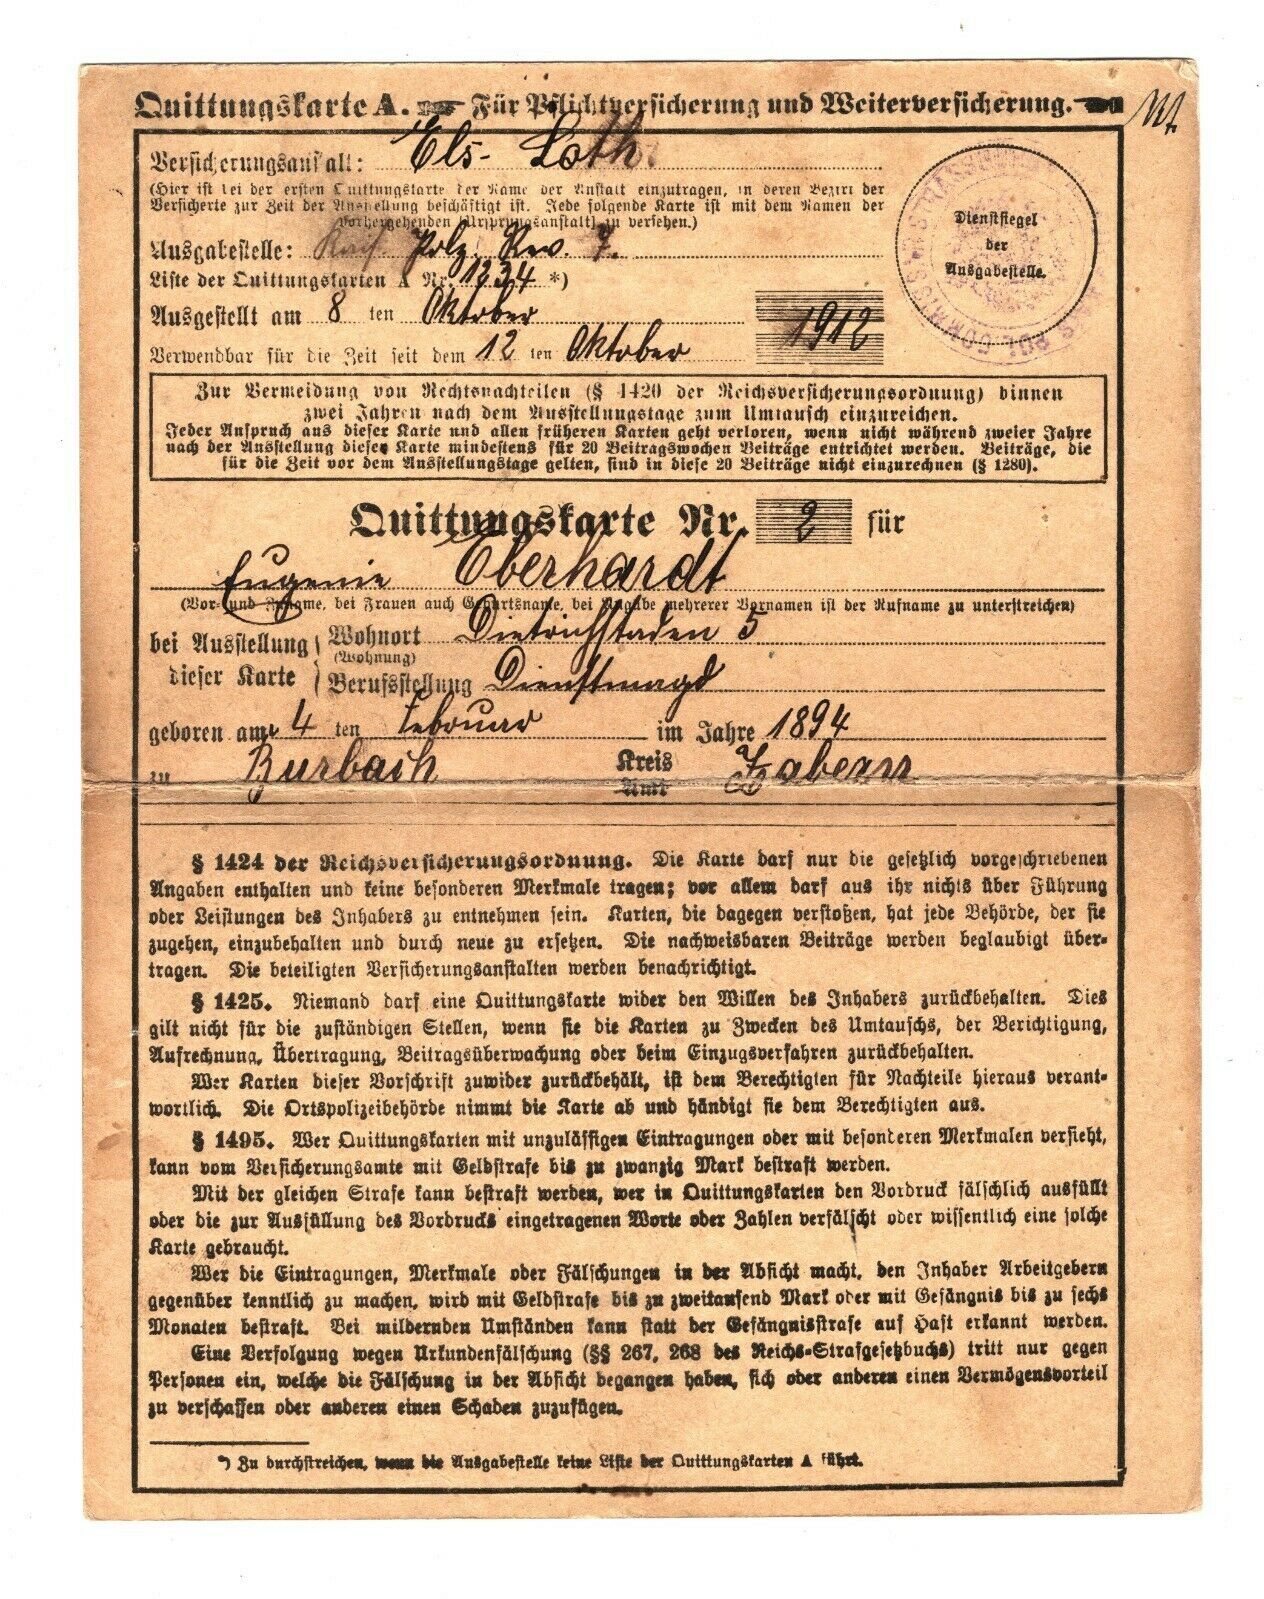 Quittungskarte A. Für Pflichtversicherung und Weiterversicherung.
Versicherungsanstalt: Els- Loth.
(Hier ist bei der ersten Quittungskarte der Name der Anstalt einzutragen, in deren Bezirk der
Versicherte zur Zeit der Ausstellung beschäftigt ist. Jede folgende Karte ist mit dem Namen der
vorhergehenden [Ursprungsanstalt] zu versehen.)
Ausgabestelle: Kais. Polz. Rev. 7.
Liste der Quittungskarten A Nr. 1234 *)
Ausgestellt am 8 ten Oktober 1912
Verwendbar für die Zeit seit dem 12 ten Oktober
Dienstsiegel
der
Ausgabestelle.
Zur Vermeidung von Rechtsnachteilen (§ 1420 der Reichsversicherungsordnung) binnen
zwei Jahren nach dem Ausstellungstage zum Umtausch einzureichen.
Jeder Anspruch aus dieser Karte und allen früheren Karten geht verloren, wenn nicht während zweier Jahre
nach der Ausstellung dieser Karte mindestens für 20 Beitragswochen Beiträge entrichtet werden. Beiträge, die
für die Zeit vor dem Ausstellungstage gelten, sind in diese 20 Beiträge nicht einzurechnen (§ 1280).
Quittungskarte Nr. 2 für
Eugenie Eberhardt
(Vor- und Zuname, bei Frauen auch Geburtsname, bei Angabe mehrerer Vornamen ist der Rufname zu unterstreichen)
bei Ausstellung Wohnort Dietrichstaden 5
(Wohnung)
dieser Karte Berufsstellung Dienstmagd
geboren am 4 ten Februar im Jahre 1894
zu Burbach Kreis Zabern
Amt
§ 1424 der Reichsversicherungsordnung. Die Karte darf nur die gesetzlich vorgeschriebenen
Angaben enthalten und keine besonderen Merkmale tragen; vor allem darf aus ihr nichts über Führung
oder Leistungen des Inhabers zu entnehmen sein. Karten, die dagegen verstoßen, hat jede Behörde, der sie
zugehen, einzubehalten und durch neue zu ersetzen. Die nachweisbaren Beiträge werden beglaubigt über-
tragen. Die beteiligten Versicherungsanstalten werden benachrichtigt.
§ 1425. Niemand darf eine Quittungskarte wider den Willen des Inhabers zurückbehalten. Dies
gilt nicht für die zuständigen Stellen, wenn sie die Karten zu Zwecken des Umtauschs, der Berichtigung,
Aufrechnung, Übertragung, Beitragsüberwachung oder beim Einzugsverfahren zurückbehalten.
Wer Karten dieser Vorschrift zuwider zurückbehält, ist dem Berechtigten für Nachteile hieraus verant-
wortlich. Die Ortspolizeibehörde nimmt die Karte ab und händigt sie dem Berechtigten aus.
§ 1495. Wer Quittungskarten mit unzulässigen Eintragungen oder mit besonderen Merkmalen versieht,
kann vom Versicherungsamte mit Geldstrafe bis zu zwanzig Mark bestraft werden.
Mit der gleichen Strafe kann bestraft werden, wer in Quittungskarten den Vordruck fälschlich ausfüllt
oder die zur Ausfüllung des Vordrucks eingetragenen Worte oder Zahlen verfälscht oder wissentlich eine solche
Karte gebraucht.
Wer die Eintragungen, Merkmale oder Fälschungen in der Absicht macht, den Inhaber Arbeitgebern
gegenüber kenntlich zu machen, wird mit Geldstrafe bis zu zweitausend Mark oder mit Gefängnis bis zu sechs
Monaten bestraft. Bei mildernden Umständen kann statt der Gefängnisstrafe auf Haft erkannt werden.
Eine Verfolgung wegen Urkundenfälschung (§§ 267, 268 des Reichs-Strafgesetzbuchs) tritt nur gegen
Personen ein, welche die Fälschung in der Absicht begangen haben, sich oder anderen einen Vermögensvorteil
zu verschaffen oder anderen einen Schaden zuzufügen.
*) Zu durchstreichen, wenn die Ausgabestelle keine Liste der Quittungskarten A führt.